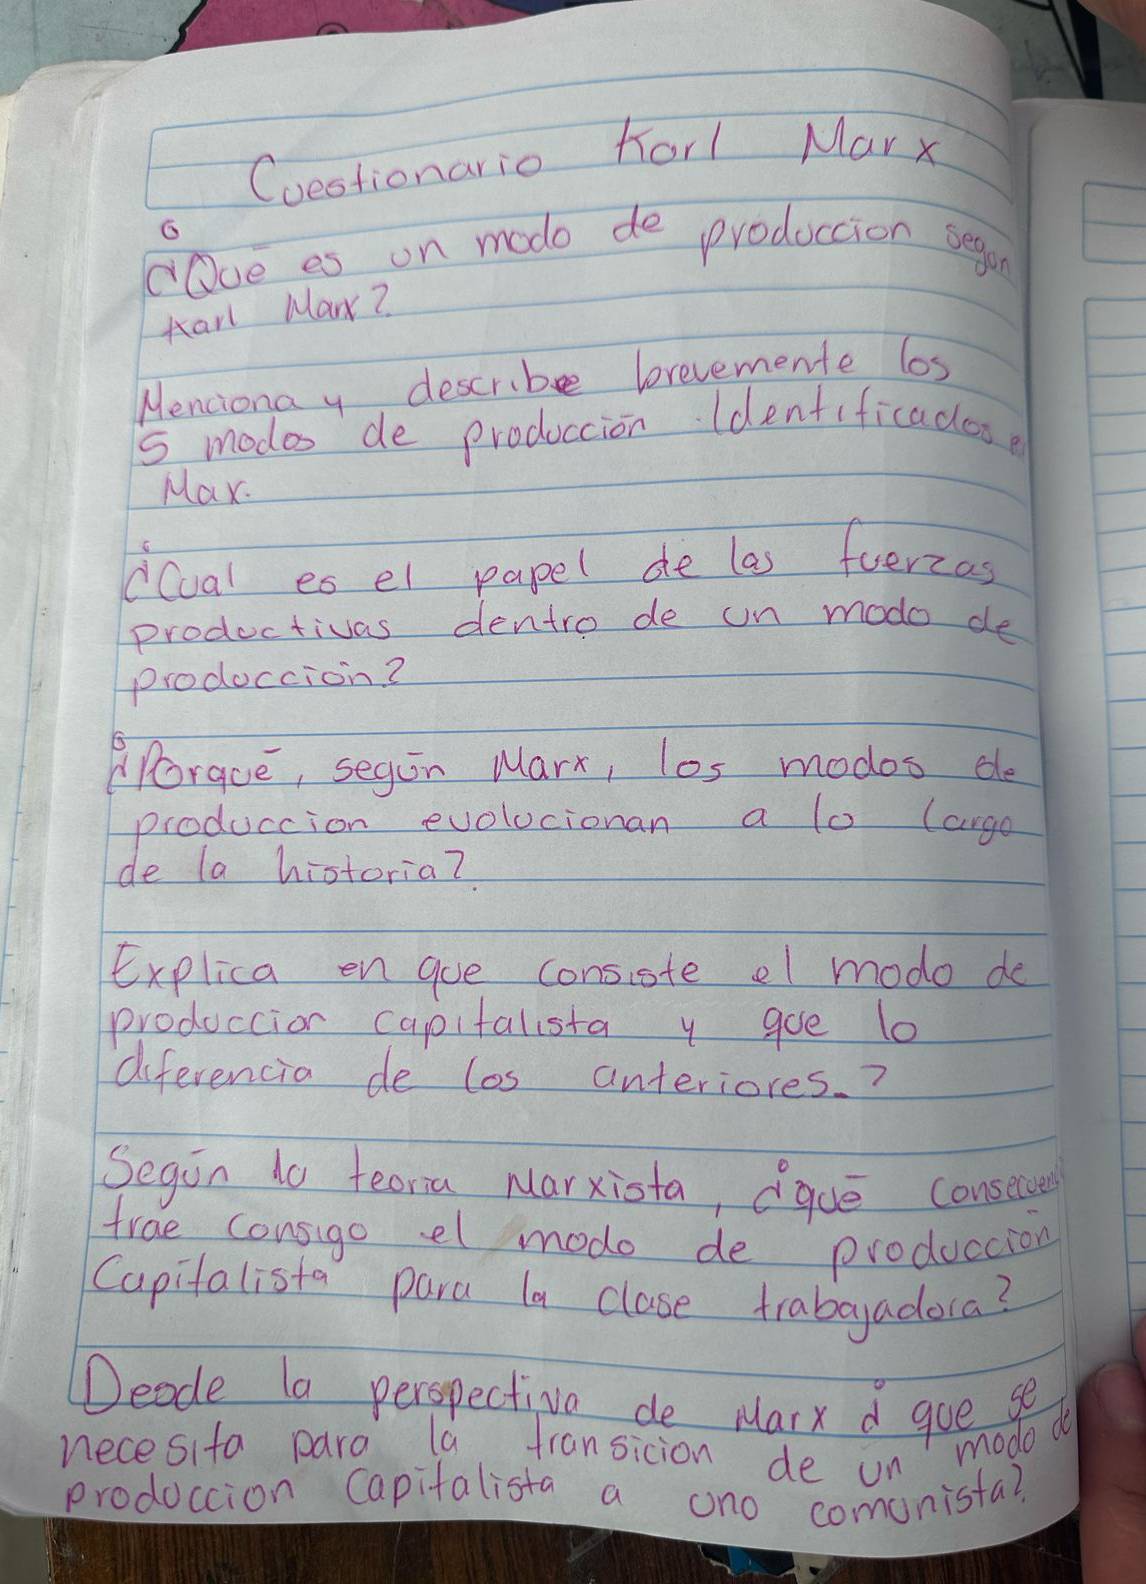 Cuestionario Karl Marx
¿Qué es un modo de produccion segun
Karl Marx?
Menciona y describe brevemente los
5 modos de producción Identificados
Max.
¿Cual es el papel de las fuerzas
productivas dentro de un modo de
producción?
¿Porqué, según Marx, los modos de
produccion evolucionan a lo largo
de la historia?
Explica en que consiste el modo de
produccion capitalista y que lo
diferencia de los anteriores.?
Según la teoria Marxista, ¿qué
trae consigo el modo de producción
Capitalista para la clase trabajadora?
Desde la perspectiva de Marx ¿ que se
necesita para la transicion de un modo de
produccion capitalista a uno comunista?